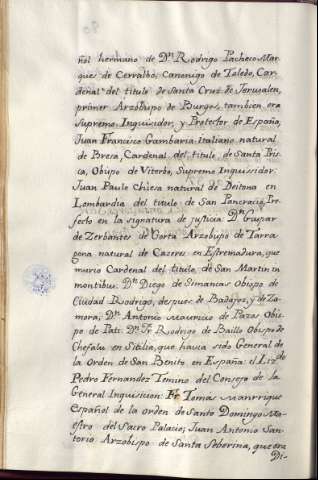 ñol hermano de Dn. Rodrigo Pacheco Mar-
ques de Cerralbo, Canonigo de Toledo, Car-
denal del titulo de Santa Cruz de Jerusalen,
primer Arzobispo de Burgos, tambien era
Supremo Inquisidor, y Protector de España,
Juan Francisco Gambaria italiano natural
de Bresa, Cardenal del titulo de Santa Pris-
ca, Obispo de Viterbo, Supremo Inquisidor:
Juan Paulo Chiesa natural de Deitona en
Lombardia del titulo de San Pancracio, Pre-
fecto en la signatura de justicia Dn. Gaspar
de Zerbantes de Gaeta Arzobispo de Tarra
gona natural de Cazeres en Estremadura, que
murio Cardenal del titulo de San Martin in
montibus: Dn. Diego de Simancas Obispo de
Ciudad Rodrigo, despues de Badajoz, y de Za-
mora; Dn. Antonio Mauricio de Pazos Obis-
po de Pati: Dn. Fr. Rodrigo de Baillo Obispo de
Chefalu en Sicilia, que havia sido General de
la Orden de San Benito en España: el Lizdo.
Pedro Fernandez Temino del Consejo de la
General Inquisicion: Fr. Tomas Manrrique
español de la orden de Santo Domingo Ma-
estro del Sacro Palacio; Juan Antonio San-
torio Arzobispo de Santa Seberina, que era
Di-